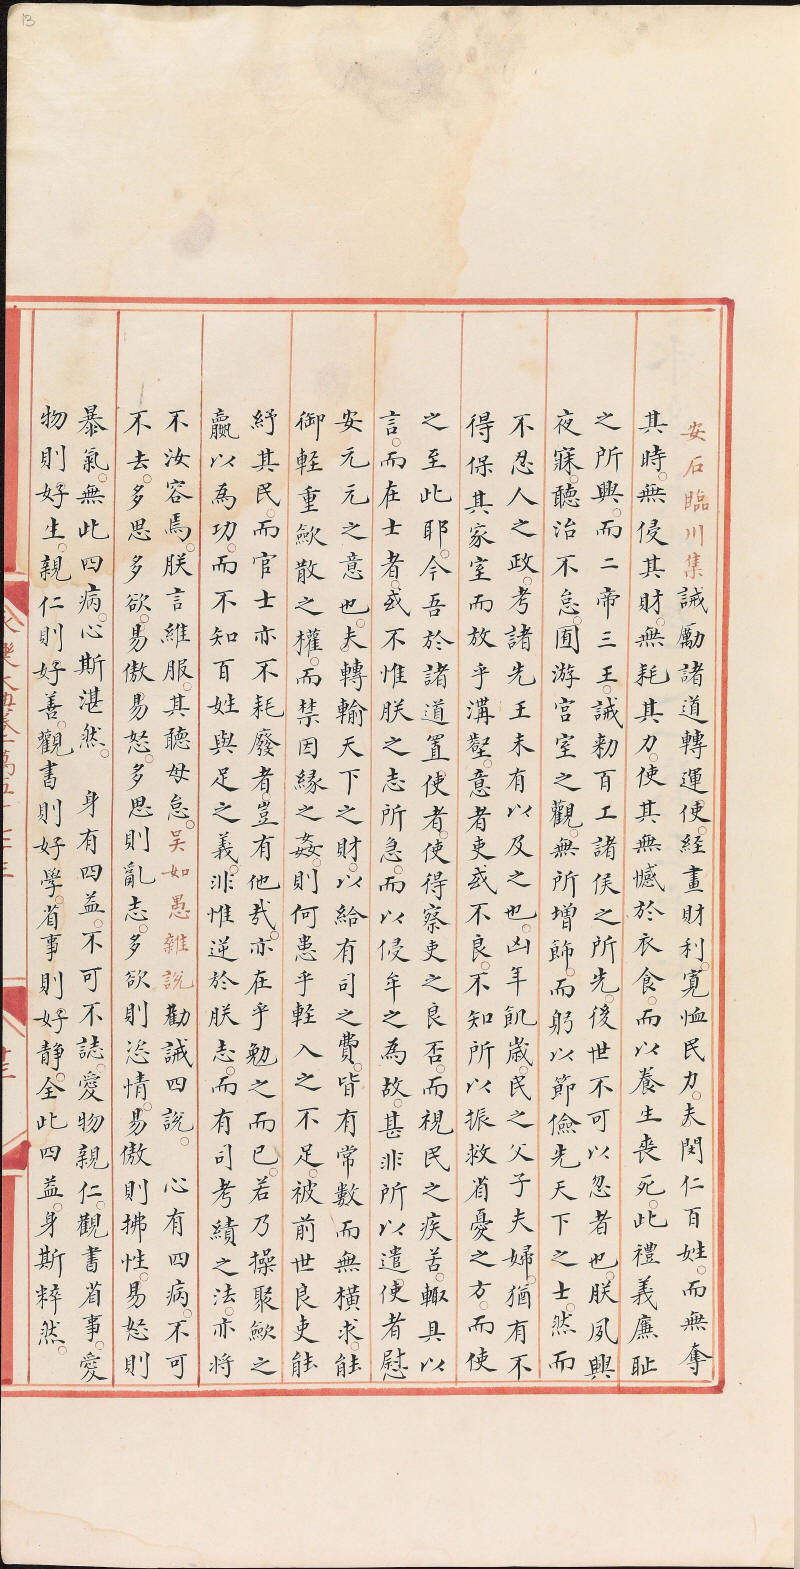 安石臨川集誡勵諸道轉運使經畫財利寬恤民力夫閔仁百姓而無奪
其時無侵其財無耗其力使其無憾於衣食而以養生喪死此禮義廉恥
之所興而二帝三王誡勑百工諸侯之所先後世不可以忽者也朕夙興
夜寐聽治不怠囿游宮室之觀無所增飾而躬以節儉先天下之士然而
不忍人之政考諸先王未有以及之也凶年飢歲民之父子夫婦猶有不
得保其家室而放乎溝壑意者吏或不良不知所以振救省憂之方而使
之至此耶今吾於諸道置使者使得察吏之良否而視民之疾苦輙具以
言而在士者或不惟朕之志所急而以侵牟之為故甚非所以遣使者慰
安元元之意也夫轉輸天下之財以給有司之費皆有常數而無橫求能
御輕重歛散之權而禁因緣之姦則何患乎輕入之不足被前世良吏能
紓其民而官士亦不耗廢者豈有他哉亦在乎勉之而已若乃操聚歛之
贏以為功而不知百姓與足之義非惟逆於朕志而有司考績之法亦將
不汝容焉朕言維服其聽毋怠吳如愚雜說勸誡四說 心有四病不可
不去多思多欲易傲易怒多思則亂志多欲則恣情易傲則拂性易怒則
暴氣無此四病心斯湛然 身有四益不可不誌愛物親仁觀書省事愛
物則好生親仁則好善觀書則好學省事則好靜全此四益身斯粹然
13